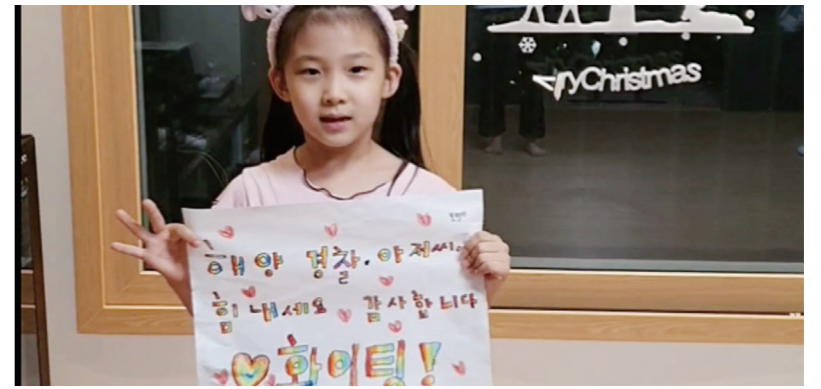 ryChristmas
해양 경찰. 아저씨.
힘내세요 감사합니다
화이팅!